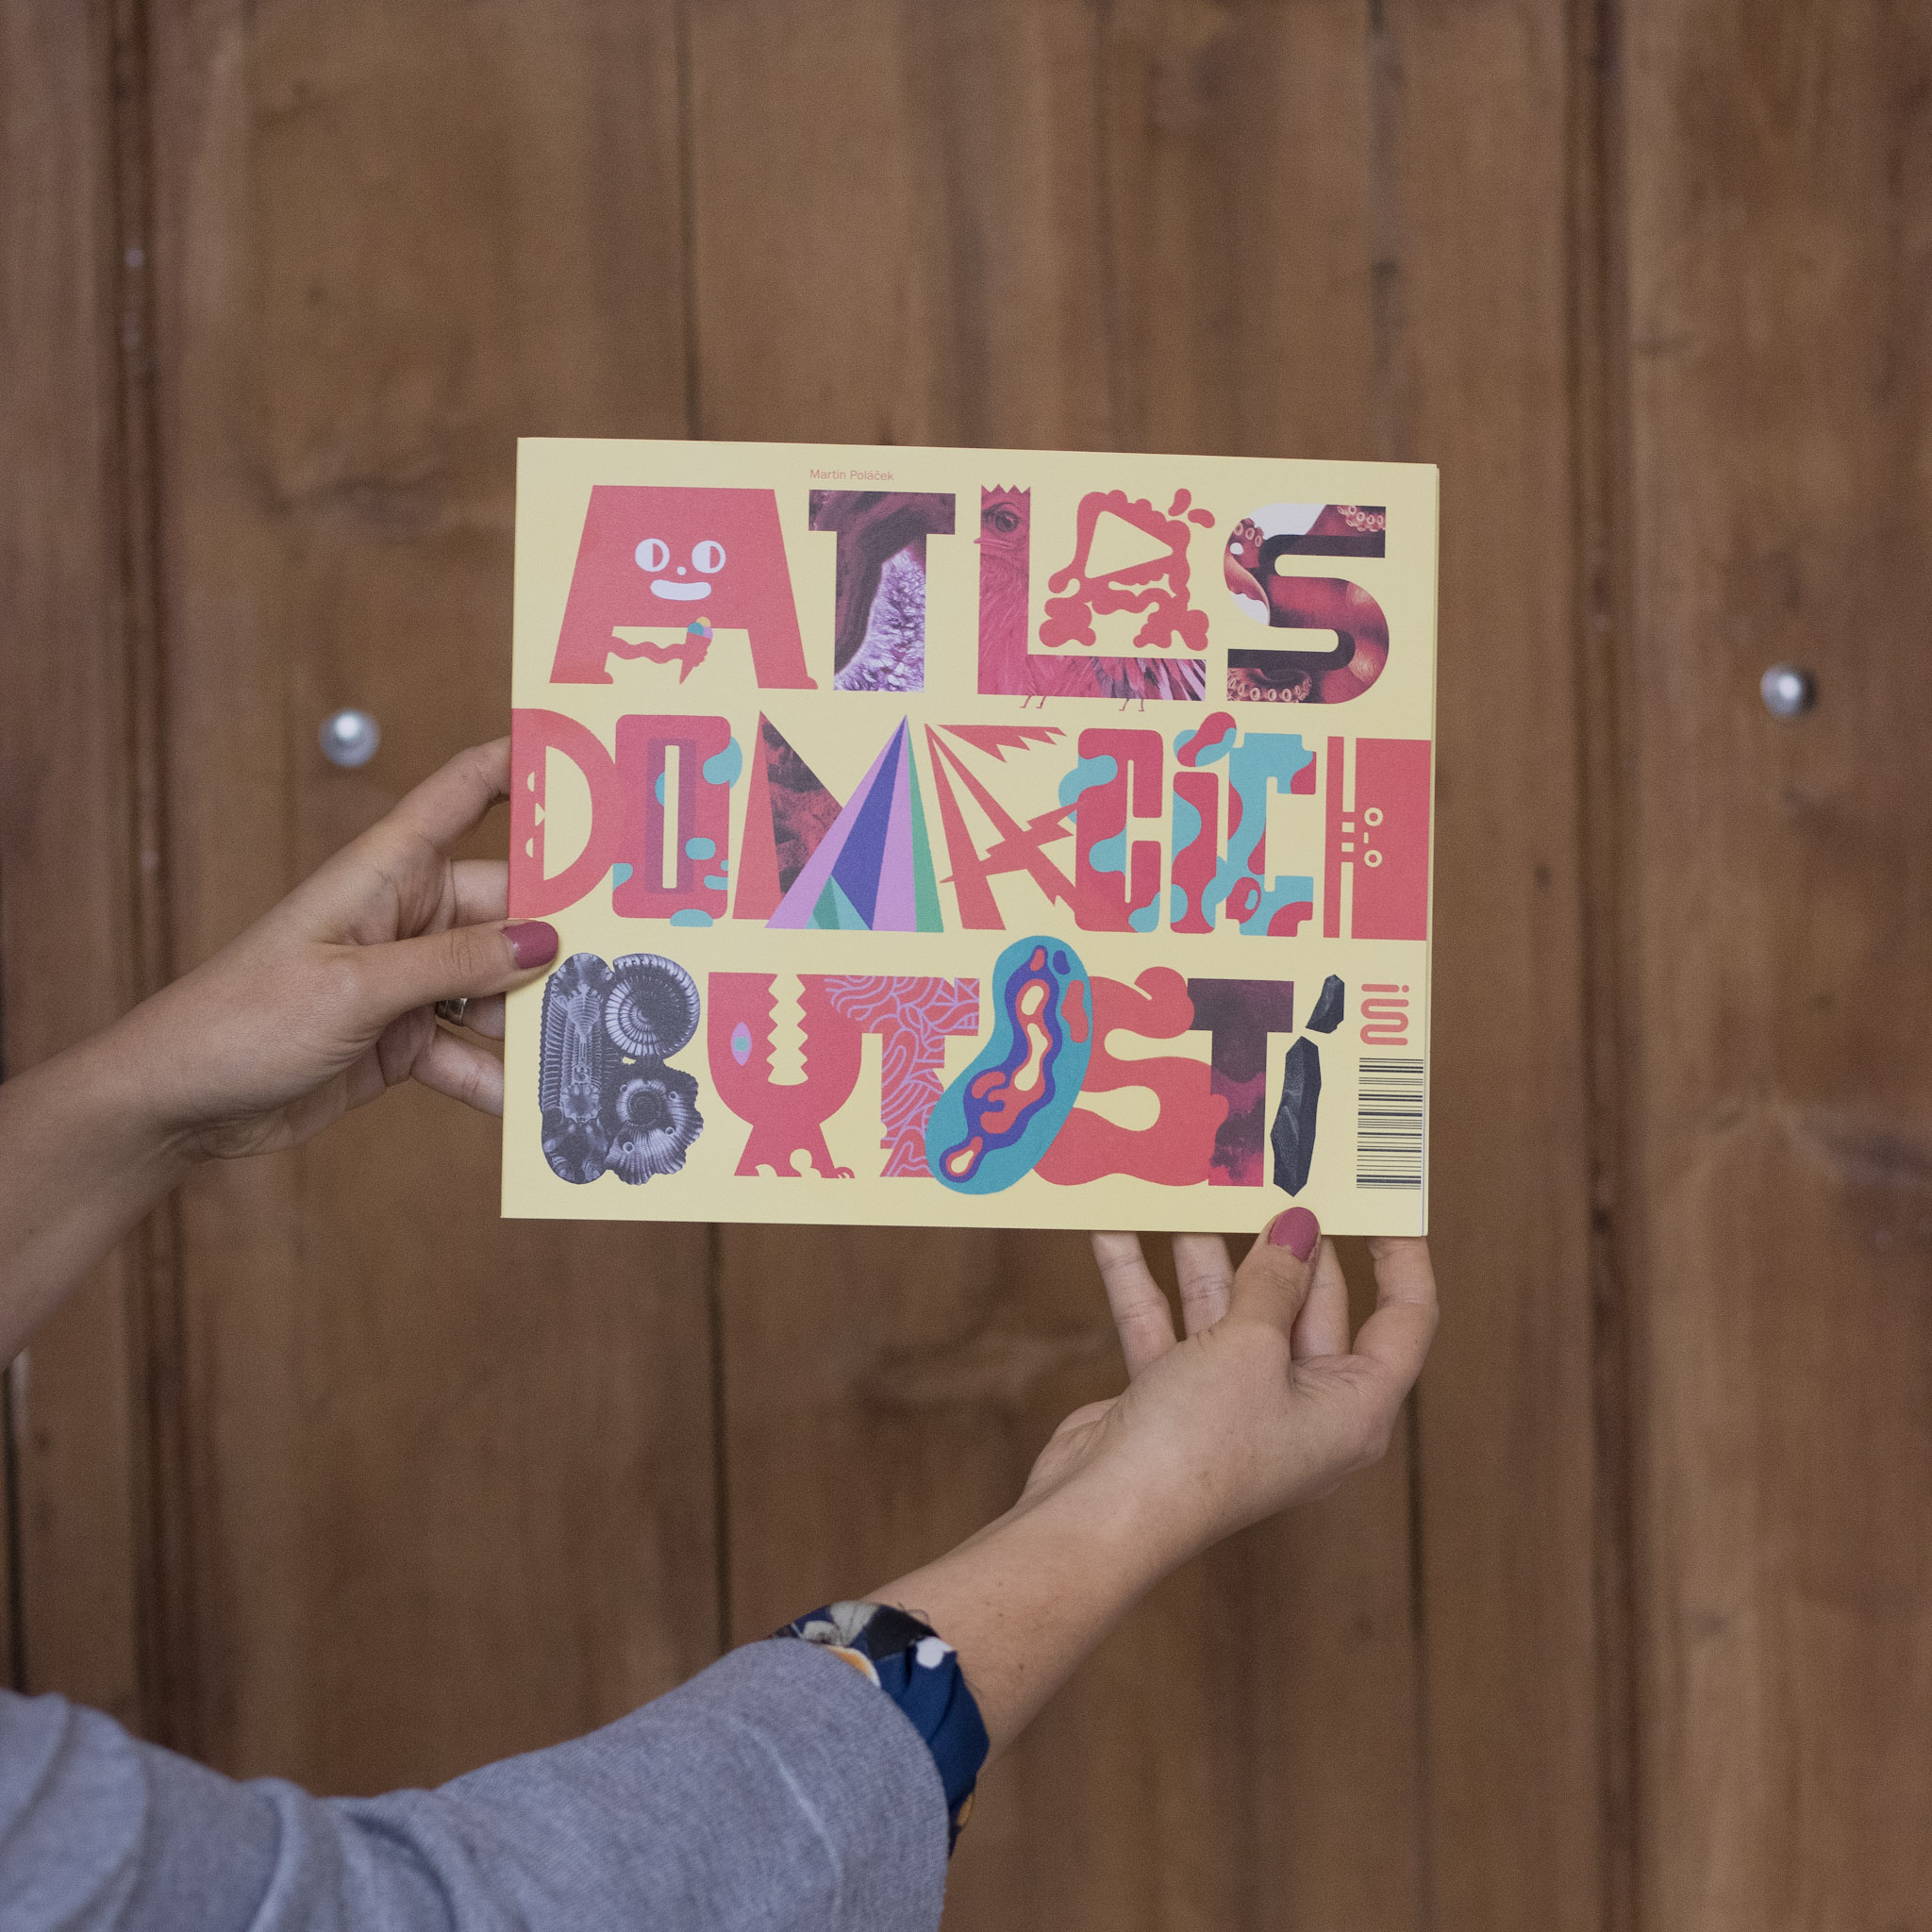 Martin Poláček
ATLAS
DOMÁCÍCH
BYTOSTÍ